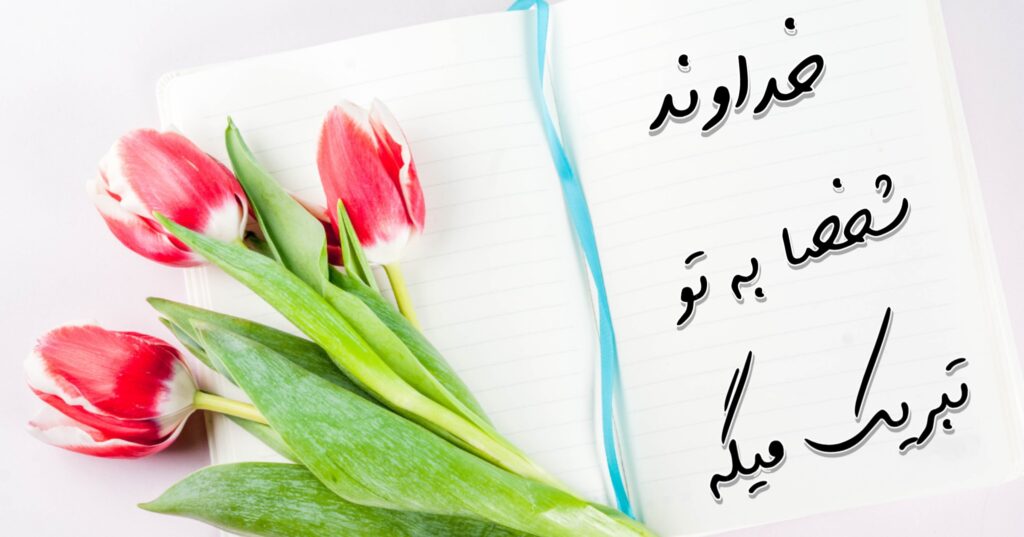 خداوند
شخصا به تو
تبریک میگه